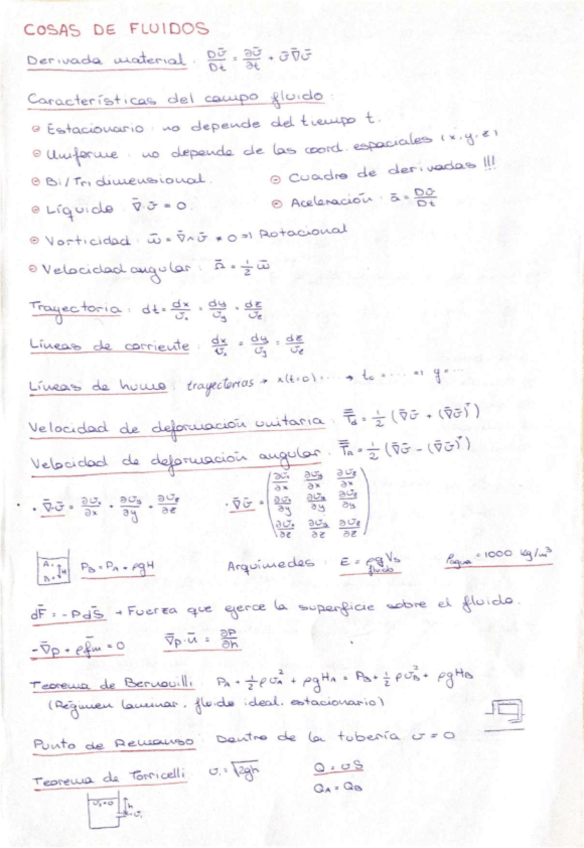 COSAS DE FLUIDOS
Derivada material: Dῡ/Dt = ∂ῡ/∂t + ῡ∇̄ῡ
Características del campo fluido:
Estacionario: no depende del tiempo t.
Uniforme: no depende de las coord. espaciales (x,y,z)
Bi/Tridimensional.
Cuadro de derivadas !!!
Líquido ∇̄·ῡ = 0
Aceleración: ā = Dῡ/Dt
Vorticidad: ω̄ = ∇̄∧ῡ ≠ 0 => Rotacional
Velocidad angular: Ω̄ = 1/2 ω̄
Trayectoria: dt = dx/υx = dy/υy = dz/υz
Líneas de corriente: dx/υx = dy/υy = dz/υz
Líneas de humo: trayectorias → x(t=0)... → t₀ = ... => y = ...
Velocidad de deformación unitaria: T̿d = 1/2 (∇̄ῡ + (∇̄ῡ)ᵀ)
Velocidad de deformación angular: T̿a = 1/2 (∇̄ῡ - (∇̄ῡ)ᵀ)
· ∇̄·ῡ = ∂υx/∂x + ∂υy/∂y + ∂υz/∂z
· ∇̄ῡ = (∂υx/∂x ∂υy/∂x ∂υz/∂x
∂υx/∂y ∂υy/∂y ∂υz/∂y
∂υx/∂z ∂υy/∂z ∂υz/∂z)
A· B· H
PB = PA + ρgH
Arquímedes: E = ρfluido g Vs
ρagua = 1000 kg/m³
dF̄ = -PdS̄ → Fuerza que ejerce la superficie sobre el fluido.
-∇̄p + ρf̄m = 0
∇̄p·ū = ∂P/∂h
Teorema de Bernouilli: PA + 1/2 ρυA² + ρgHA = PB + 1/2 ρυB² + ρgHB
(Régimen laminar, fluido ideal, estacionario)
Punto de Remanso: Dentro de la tubería υ = 0
Teorema de Torricelli υ₁ = √2gh
Q = υS
QA = QB
υ₀=0 h υ₁